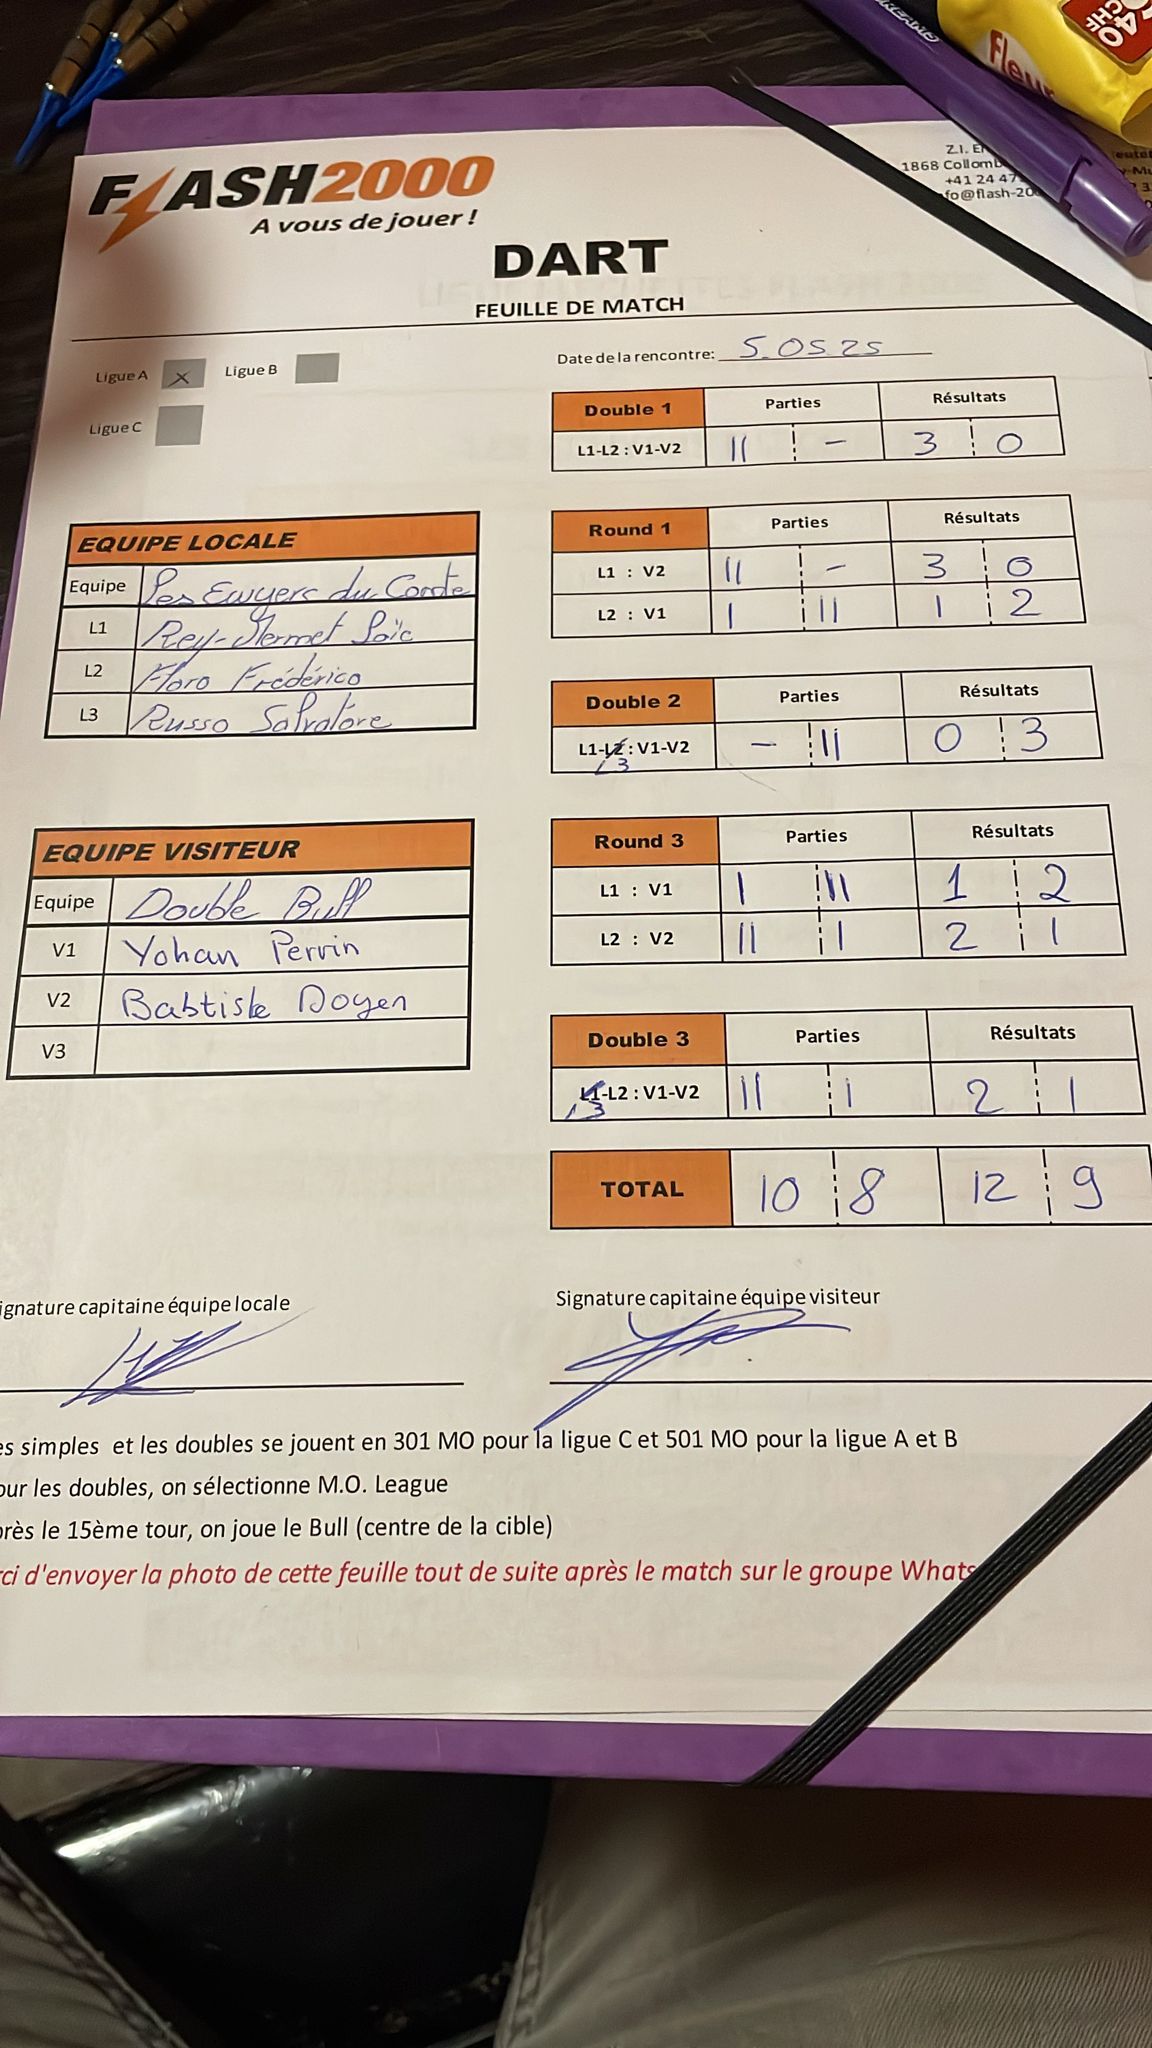 FLASH2000
A vous de jouer !
1868 Collomb
+41 24 47
fo@flash-20
40
CHF
Fleur
DART
FEUILLE DE MATCH
Ligue A X Ligue B
Ligue C
Date de la rencontre: 5.05.25
Double 1 Parties Résultats
L1-L2 : V1-V2 || - 3 0
EQUIPE LOCALE
Equipe Les Ewyers du Comte
L1 Rey-Mermet Loïc
L2 Floro Frédérico
L3 Russo Salvatore
Round 1 Parties Résultats
L1 : V2 || - 3 0
L2 : V1 | || 1 2
Double 2 Parties Résultats
L1-L2 : V1-V2 - || 0 3
L3
EQUIPE VISITEUR
Equipe Double Bull
V1 Yohan Perrin
V2 Babtiste Doyen
V3
Round 3 Parties Résultats
L1 : V1 | || 1 2
L2 : V2 || | 2 1
Double 3 Parties Résultats
L1-L2 : V1-V2 || | 2 1
L3
TOTAL 10 8 12 9
ignature capitaine équipe locale
Signature capitaine équipe visiteur
es simples et les doubles se jouent en 301 MO pour la ligue C et 501 MO pour la ligue A et B
our les doubles, on sélectionne M.O. League
près le 15ème tour, on joue le Bull (centre de la cible)
ci d'envoyer la photo de cette feuille tout de suite après le match sur le groupe Whats